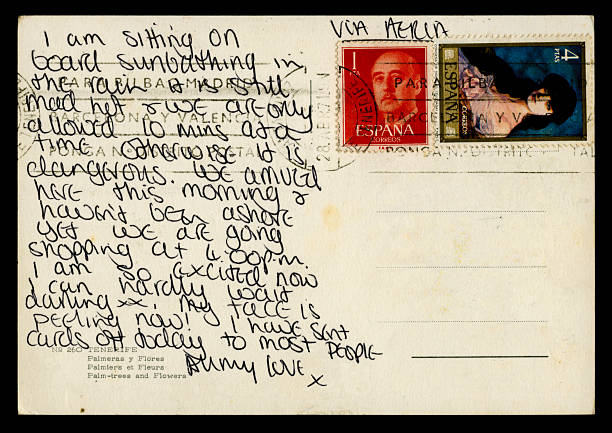 VIA AEREA
I am sitting on
board sunbathing in
the rain it is still
mad hot & we are only
allowed 10 mins at a
time otherwise it is
dangerous. We arrived
here this morning &
haven't been ashore
yet we are going
shopping at 4.00pm.
I am so excited now
I can hardly wait
darling xx. My face is
peeling now! I have sent
cards off today to most PEOPLE
All my love
x
1
ESPAÑA
CORREOS
4
PTAS
ESPAÑA
CORREOS
PARA BILBAO MADRID
BARCELONA Y VALENCIA
PARA BILB
BARCELONA Y V
Nº 260 TENERIFE
Palmeras y Flores
Palmiers et Fleurs
Palm-trees and Flowers